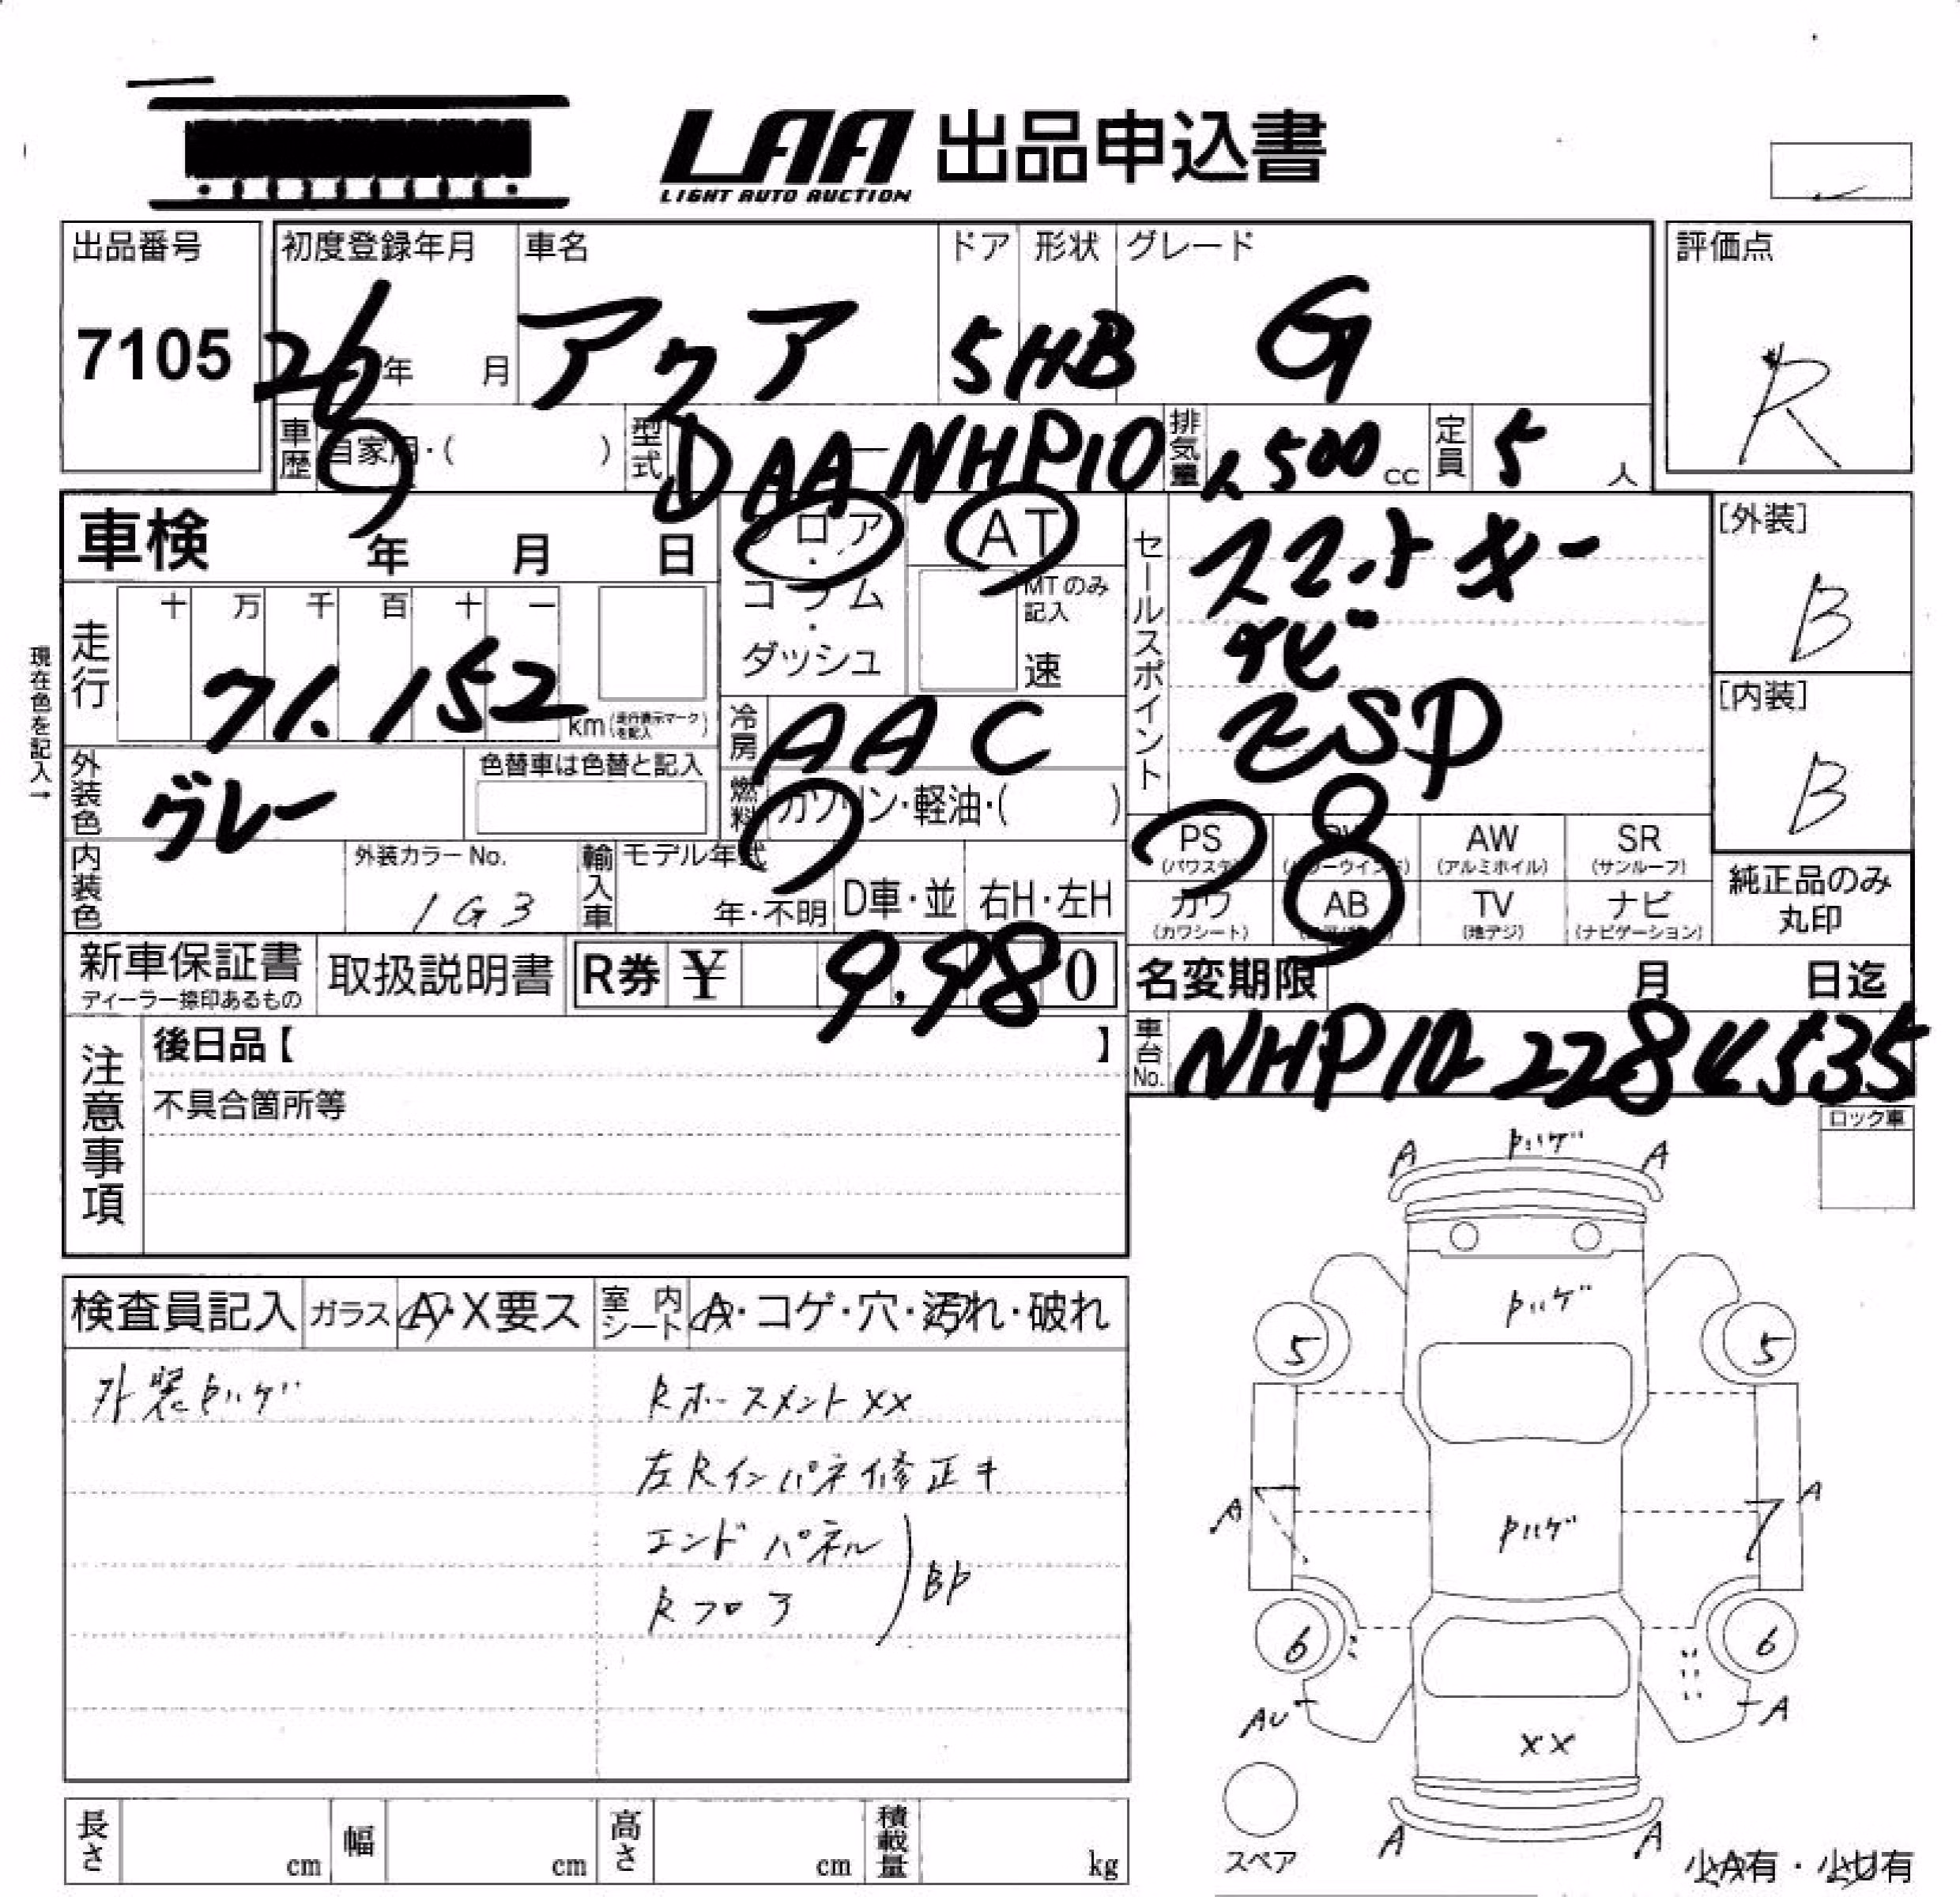 LAA 出品申込書
LIGHT AUTO AUCTION
出品番号
7105
初度登録年月
26年 月
車名
アクア
ドア
5
形状
HB
グレード
G
評価点
R
車歴
自家用・( )
型式
DAA-NHP10
排気量
1500cc
定員
5人
車検 年 月 日
フロア・コラム・ダッシュ
AT
MTのみ記入
速
セールスポイント
スマートキー
ナビ
ESP
[外装]
B
[内装]
B
現在色を記入→
走行
十 万 千 百 十 一
71,152 km (走行表示マークを記入)
冷房
AAC
外装色
グレー
色替車は色替と記入
燃料
ガソリン・軽油・( )
内装色
外装カラーNo.
1G3
輸入車
モデル年式
年・不明
D車・並
右H・左H
PS (パワステ)
(パワーウインド)
AW (アルミホイル)
SR (サンルーフ)
カワ (カワシート)
AB
TV (地デジ)
ナビ (ナビゲーション)
純正品のみ丸印
新車保証書
ディーラー捺印あるもの
取扱説明書
R券 ¥ 9,980
名変期限 月 日迄
車台No.
NHP10-2284535
注意事項
後日品【 】
不具合箇所等
ロック車
検査員記入
ガラス A・X要ス
室内シート A・コゲ・穴・汚れ・破れ
外装トハゲ
Rホースメントxx
左Rインパネ修正キ
エンドパネル
Rフロア
BP
A トハゲ A
トハゲ
5 5
A トハゲ A
6 6
AU A
xx
A A
スペア
少A有・少U有
長さ cm
幅 cm
高さ cm
積載量 kg